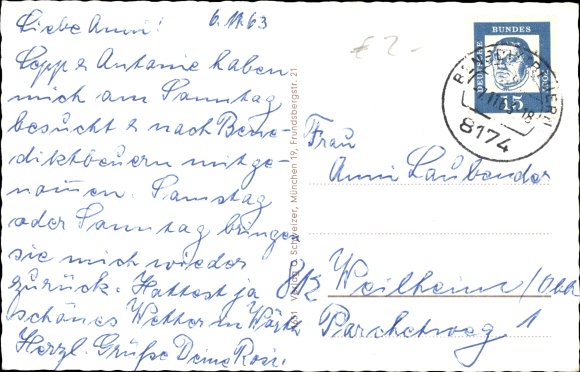 Liebe Anni! 6.11.63
Sepp & Antonie haben
mich am Sonntag
besucht & nach Bene-
diktbeuern mitge-
nommen. Samstag
oder Sonntag bringen
sie mich wieder
zurück. Hattest ja
schönes Wetter in
Herzl. Grüße Deine Rosi.
£ 2.-
DEUTSCHE BUNDESPOST
15
8174
Verlag Schweizer, München 19, Frundsbergstr. 21
Frau
Anni Laubender
812 Weilheim/Obb
Parchetweg 1